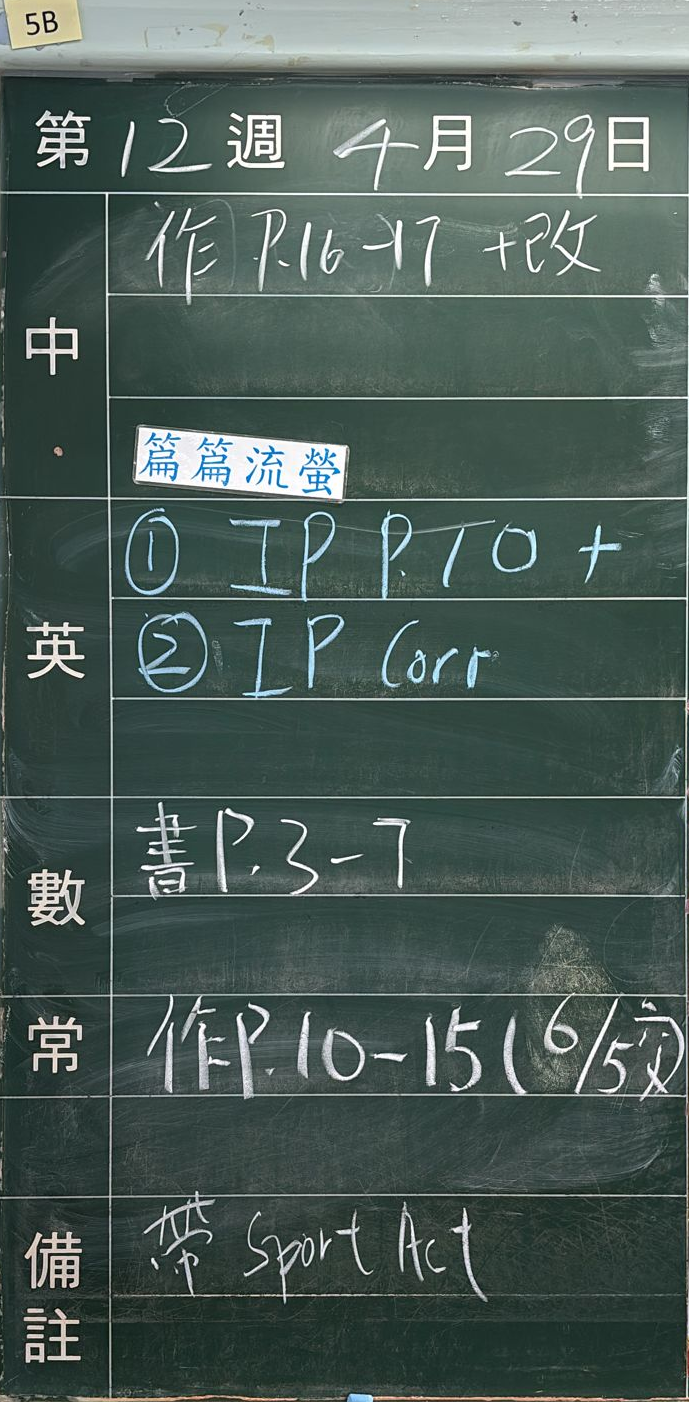 5B
第12週 4月29日
中
作 P.16-17 +改
篇篇流螢
英
① IP P.10 +
② IP Corr
數
書P.3-7
常
作P.10-15(6/5交)
備註
帶 Sport Act